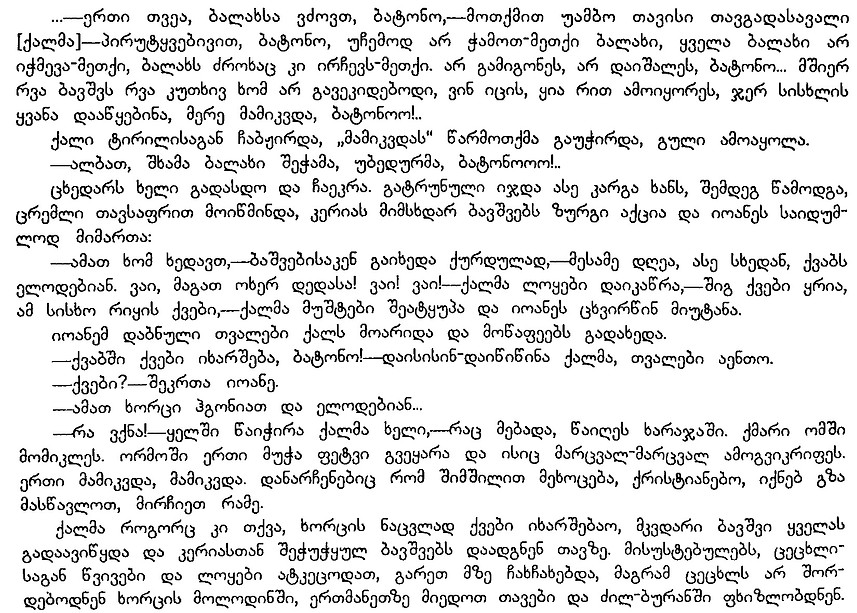 ...—ერთი თვეა, ბალახსა ვძოვთ, ბატონო,—მოთქმით უამბო თავისი თავგადასავალი
[ქალმა]—პირუტყვებივით, ბატონო, უჩემოდ არ ჭამოთ-მეთქი ბალახი, ყველა ბალახი არ
იჭმევა-მეთქი, ბალახს ძროხაც კი ირჩევს-მეთქი. არ გამიგონეს, არ დაიშალეს, ბატონო... მშიერ
რვა ბავშვს რვა კუთხივ ხომ არ გავეკიდებოდი, ვინ იცის, ყია რით ამოიყორეს, ჯერ სისხლის
ყვანა დააწყებინა, მერე მამიკვდა, ბატონოო!..
ქალი ტირილისაგან ჩაბჟირდა, „მამიკვდას“ წარმოთქმა გაუჭირდა, გული ამოაყოლა.
—ალბათ, შხამა ბალახი შეჭამა, უბედურმა, ბატონოოო!..
ცხედარს ხელი გადასდო და ჩაეკრა. გატრუნული იჯდა ასე კარგა ხანს, შემდეგ წამოდგა,
ცრემლი თავსაფრით მოიწმინდა, კერიას მიმსხდარ ბავშვებს ზურგი აქცია და იოანეს საიდუმ-
ლოდ მიმართა:
—ამათ ხომ ხედავთ,—ბაშვებისაკენ გაიხედა ქურდულად,—მესამე დღეა, ასე სხედან, ქვაბს
ელოდებიან. ვაი, მაგათ ოხერ დედასა! ვაი! ვაი!—ქალმა ლოყები დაიკაწრა,—შიგ ქვები ყრია,
ამ სისხო რიყის ქვები,—ქალმა მუშტები შეატყუპა და იოანეს ცხვირწინ მიუტანა.
იოანემ დაბნული თვალები ქალს მოარიდა და მოწაფეებს გადახედა.
—ქვაბში ქვები იხარშება, ბატონო!—დაისისინ-დაიწიწინა ქალმა, თვალები აენთო.
—ქვები?—შეკრთა იოანე.
—ამათ ხორცი ჰგონიათ და ელოდებიან...
—რა ვქნა!—ყელში წაიჭირა ქალმა ხელი,—რაც მებადა, წაიღეს ხარაჯაში. ქმარი ომში
მომიკლეს. ორმოში ერთი მუჭა ფეტვი გვეყარა და ისიც მარცვალ-მარცვალ ამოგვიკრიფეს.
ერთი მამიკვდა, მამიკვდა. დანარჩენებიც რომ შიმშილით მეხოცება, ქრისტიანებო, იქნებ გზა
მასწავლოთ, მირჩიეთ რამე.
ქალმა როგორც კი თქვა, ხორცის ნაცვლად ქვები იხარშებაო, მკვდარი ბავშვი ყველას
გადაავიწყდა და კერიასთან შეჭუჭყულ ბავშვებს დაადგნენ თავზე. მისუსტებულებს, ცეცხლი-
საგან წვივები და ლოყები ატკეცოდათ, გარეთ მზე ჩახჩახებდა, მაგრამ ცეცხლს არ შორ-
დებოდნენ ხორცის მოლოდინში, ერთმანეთზე მიედოთ თავები და ძილ-ბურანში ფხიზლობდნენ.